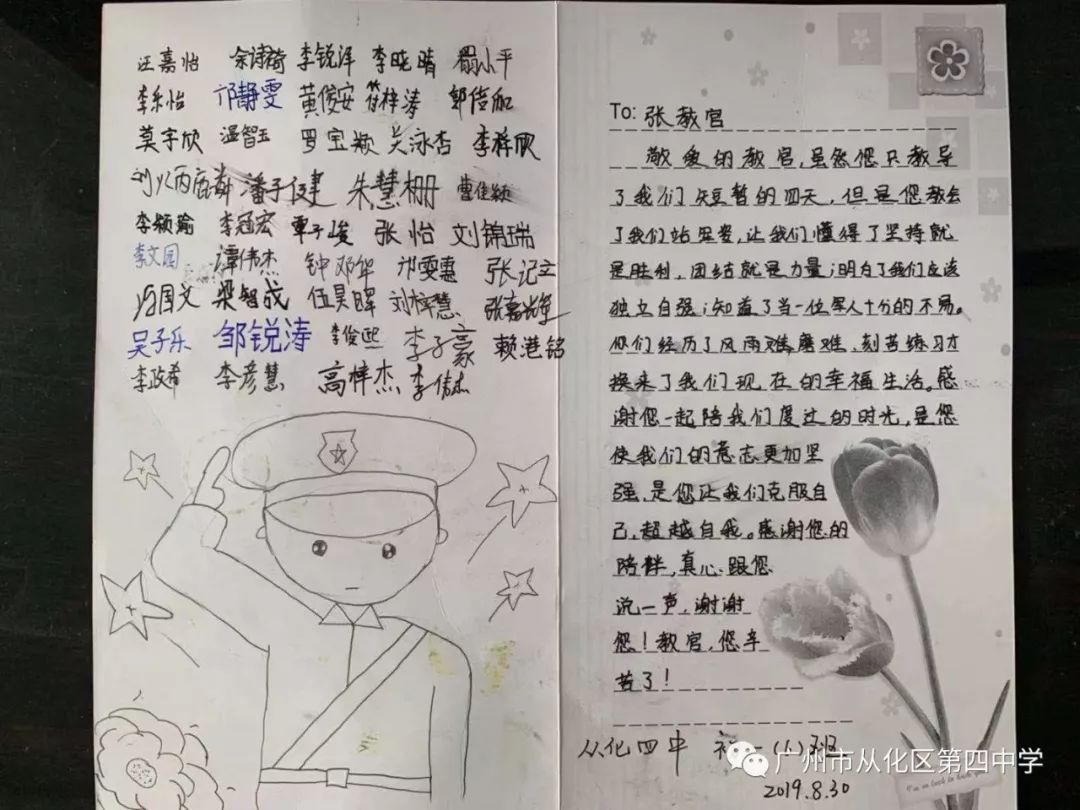 汪嘉怡 余诗琦 李锐泽 李晓晴 小平
李乐怡 邝静雯 黄俊安 符梓涛 邹倍加
莫宇欣 温智玉 罗宝颖 吴泳杏 李梓欣
刘 潘子健 朱慧栅 曹佳颖
李颖瑜 李冠宏 覃子峻 张怡 刘锦瑞
李文园 谭伟杰 钟邓华 邝雯惠 张记立
冯国文 梁智成 伍昊晖 刘梓慧 张嘉
吴子乐 邹锐涛 李俊熙 李子豪 赖港铭
李政希 李彦慧 高梓杰 李伟杰
To: 张教官
敬爱的教官,虽然您只教导
了我们短暂的四天,但是您教会
了我们站军姿,让我们懂得了坚持就
是胜利,团结就是力量;明白了我们应该
独立自强;知道了当一位军人十分的不易。
你们经历了风雨难磨难,刻苦练习才
换来了我们现在的幸福生活。感
谢您一起陪我们度过的时光,是您
使我们的意志更加坚
强,是您让我们克服自
己,超越自我。感谢您的
陪伴,真心跟您
说一声,谢谢
您!教官,您辛
苦了!
从化四中 初一(1)班
2019.8.30
广州市从化区第四中学